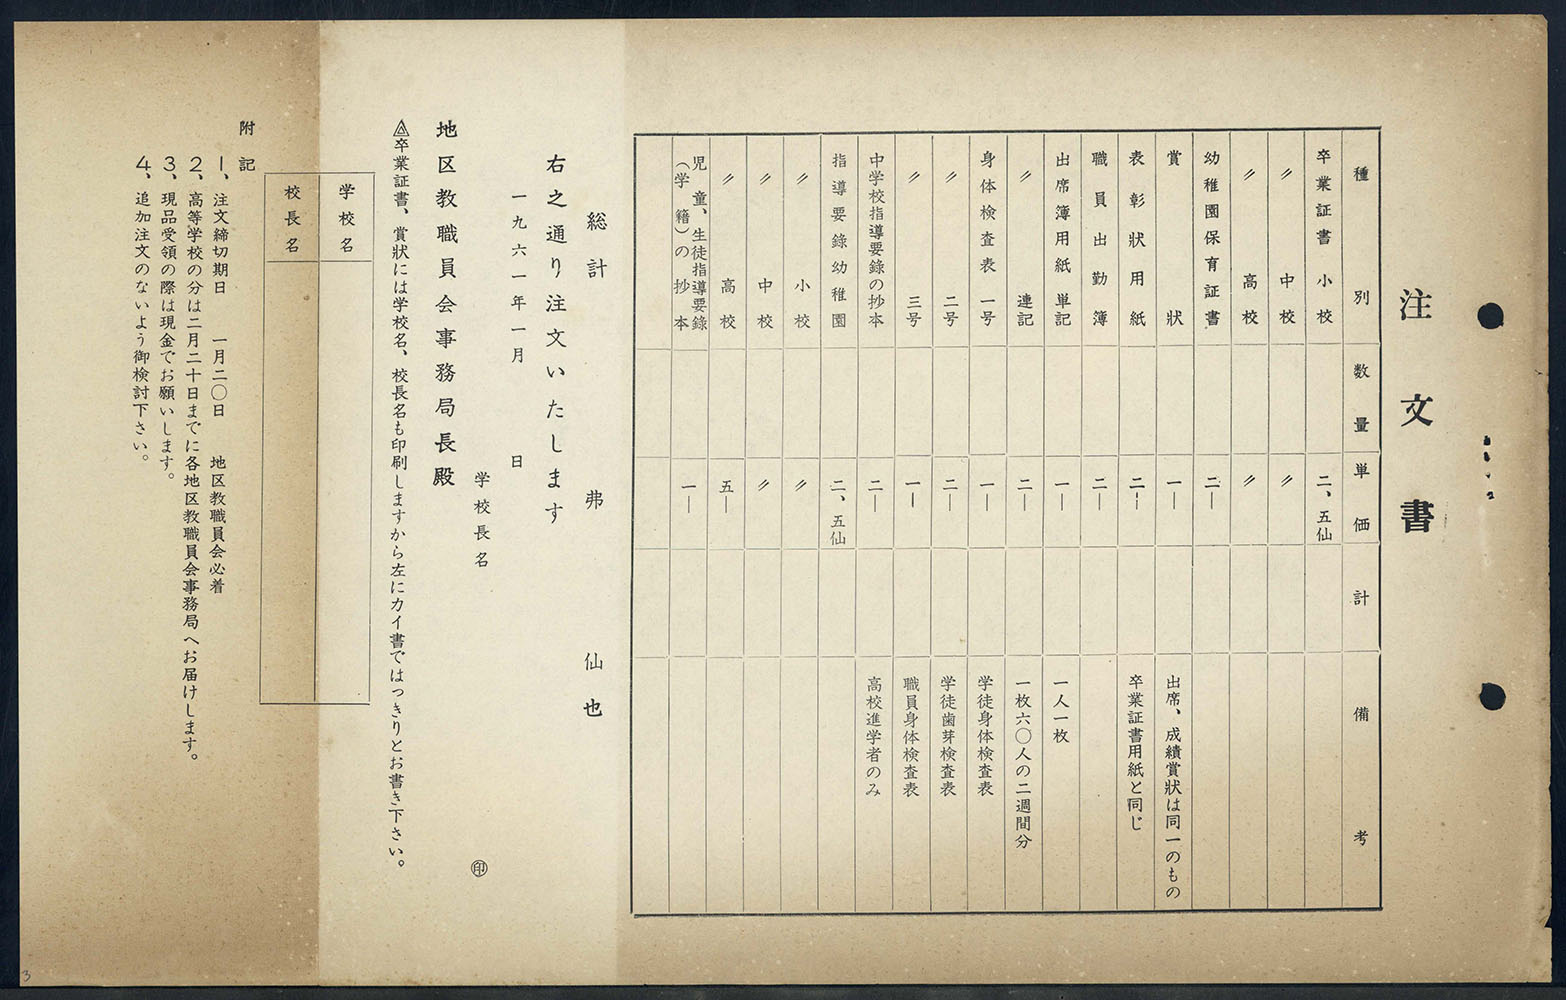 注文書
種別 数量 単価 計 備考
卒業証書 小校 二、五仙
〃 中校 〃
〃 高校 〃
幼稚園保育証書 二―
賞状 一― 出席、成績賞状は同一のもの
表彰状用紙 二― 卒業証書用紙と同じ
職員出勤簿 二―
出席簿用紙 単記 一― 一人一枚
〃 連記 二― 一枚六〇人の二週間分
身体検査表 一号 一― 学徒身体検査表
〃 二号 二― 学徒歯芽検査表
〃 三号 一― 職員身体検査表
中学校指導要録の抄本 二― 高校進学者のみ
指導要録幼稚園 二、五仙
〃 小校 〃
〃 中校 〃
〃 高校 五―
児童、生徒指導要録(学籍)の抄本 一―
総計 弗 仙也
右之通り注文いたします
一九六一年一月 日
学校長名 ㊞
地区教職員会事務局長殿
卒業証書、賞状には学校名、校長名も印刷しますから左にカイ書ではっきりとお書き下さい。
学校名
校長名
附記
1、注文締切期日 一月二〇日 地区教職員会必着
2、高等学校の分は二月二十日までに各地区教職員会事務局へお届けします。
3、現品受領の際は現金でお願いします。
4、追加注文のないよう御検討下さい。
3